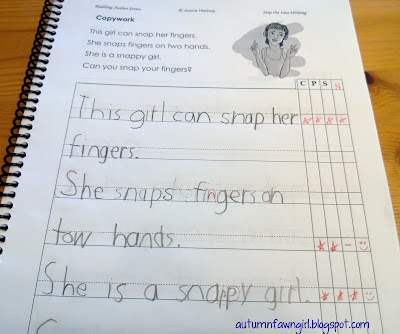 Copywork
This girl can snap her fingers.
She snaps fingers on two hands.
She is a snappy girl.
Can you snap your fingers?
C P S S
This girl can snap her
fingers.
She snaps fingers on
tow hands.
She is a snappy girl.
autumnfawngirl.blogspot.com